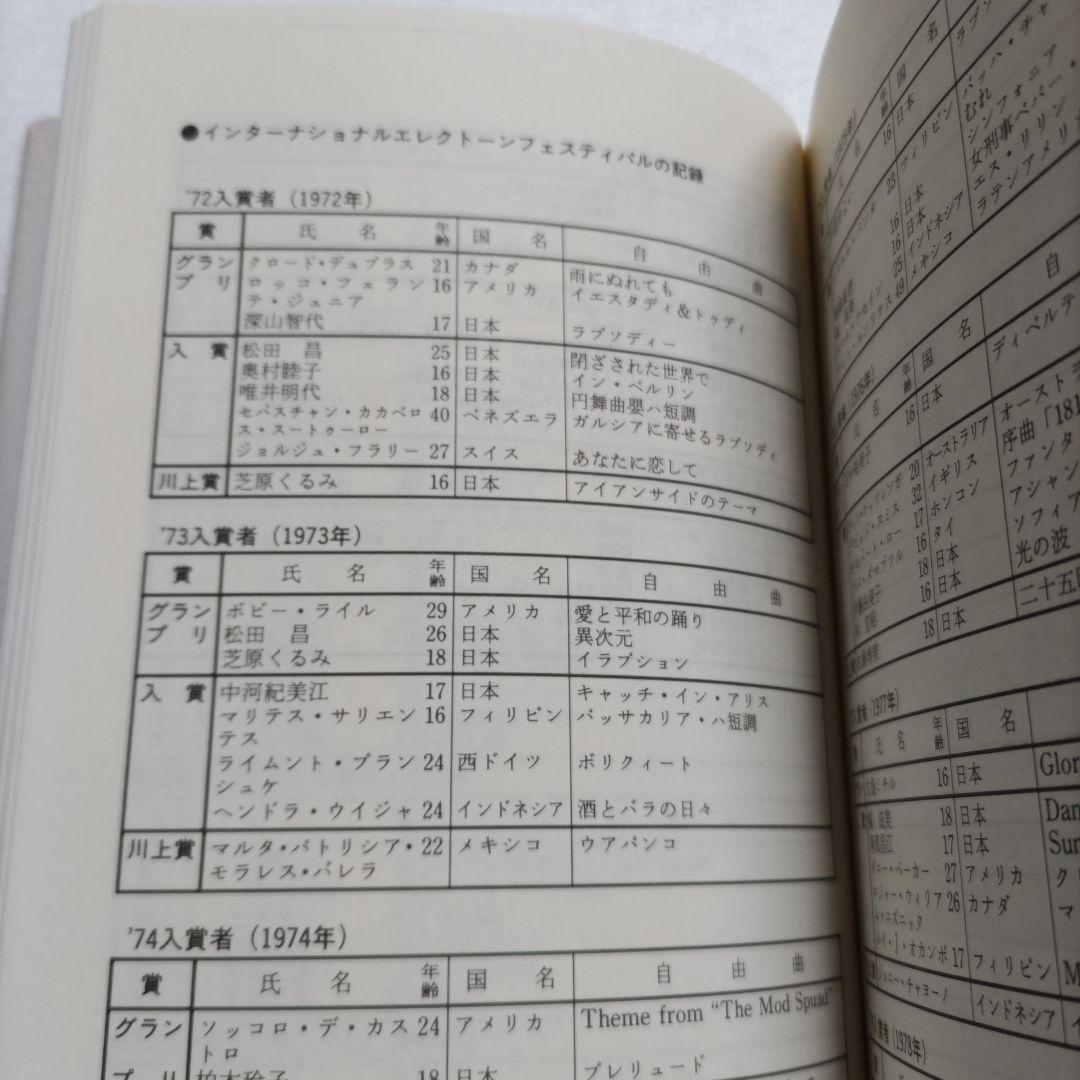 ●インターナショナルエレクトーンフェスティバルの記録
'72入賞者(1972年)
賞 氏名 年齢 国名 自由曲
グラン クロード・デュプラス 21 カナダ 雨にぬれても
プリ ロッコ・フェラン 16 アメリカ イエスタディ&トゥディ
テ・ジュニア
深山智代 17 日本 ラプソディー
入賞 松田 昌 25 日本 閉ざされた世界で
奥村睦子 16 日本 イン・ベルリン
唯井明代 18 日本 円舞曲嬰ハ短調
セバスチャン・カカベロ 40 ベネズエラ ガルシアに寄せるラプソディ
ス・スートゥーロー
ジョルジュ・フラリー 27 スイス あなたに恋して
川上賞 芝原くるみ 16 日本 アイアンサイドのテーマ
'73入賞者(1973年)
賞 氏名 年齢 国名 自由曲
グラン ボビー・ライル 29 アメリカ 愛と平和の踊り
プリ 松田 昌 26 日本 異次元
芝原くるみ 18 日本 イラプション
入賞 中河紀美江 17 日本 キャッチ・イン・アリス
マリテス・サリエン 16 フィリピン パッサカリア・ハ短調
テス
ライムント・プラン 24 西ドイツ ボリクィート
シュケ
ヘンドラ・ウイジャ 24 インドネシア 酒とバラの日々
川上賞 マルタ・パトリシア・ 22 メキシコ ウアパンコ
モラレス・バレラ
'74入賞者(1974年)
賞 氏名 年齢 国名 自由曲
グラン ソッコロ・デ・カス 24 アメリカ Theme from "The Mod Spuad"
トロ
プリ 柏木玲子 18 日本 プレリュード
(1975年)
名 年齢 国名
16 日本 バッハ・チャ
むれ
23 フィリピン シンフォニア
16 日本 女刑事ペパー・
16 日本 エス・リリン
25 インドネシア ラテンアメリ
49 メキシコ
(1976年)
名 年齢 国名 自
16 日本 ディベルテ
20 オーストラリア オーストラ
32 イギリス 序曲「181
17 ホンコン ファンタ
16 タイ アシャン
18 日本 ソフィア
16 日本 光の波
18 日本 二十五
(1977年)
氏名 年齢 国名
16 日本 Glor
18 日本 Dan
17 日本 Sur
ニー・ベーカー 27 アメリカ ク
ジャー・ウィリア 26 カナダ マ
ム・ニズニック
ルイ・J・オカンポ 17 フィリピン M
ジェニー・チャヨーノ インドネシア イ
入賞者(1978年)